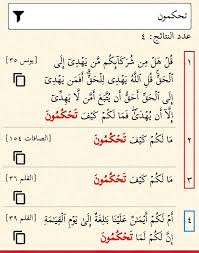 تحكمون
عدد النتائج: ٤
١ قُلْ هَلْ مِن شُرَكَآئِكُم مَّن يَهْدِىٓ إِلَى [يونس ٣٥]
ٱلْحَقِّ قُلِ ٱللَّهُ يَهْدِى لِلْحَقِّ أَفَمَن يَهْدِىٓ
إِلَى ٱلْحَقِّ أَحَقُّ أَن يُتَّبَعَ أَمَّن لَّا يَهِدِّىٓ
إِلَّآ أَن يُهْدَىٰ فَمَا لَكُمْ كَيْفَ تَحْكُمُونَ
٢ مَا لَكُمْ كَيْفَ تَحْكُمُونَ [الصافات ١٥٤]
٣ مَا لَكُمْ كَيْفَ تَحْكُمُونَ [القلم ٣٦]
٤ أَمْ لَكُمْ أَيْمَٰنٌ عَلَيْنَا بَٰلِغَةٌ إِلَىٰ يَوْمِ ٱلْقِيَٰمَةِ [القلم ٣٩]
إِنَّ لَكُمْ لَمَا تَحْكُمُونَ